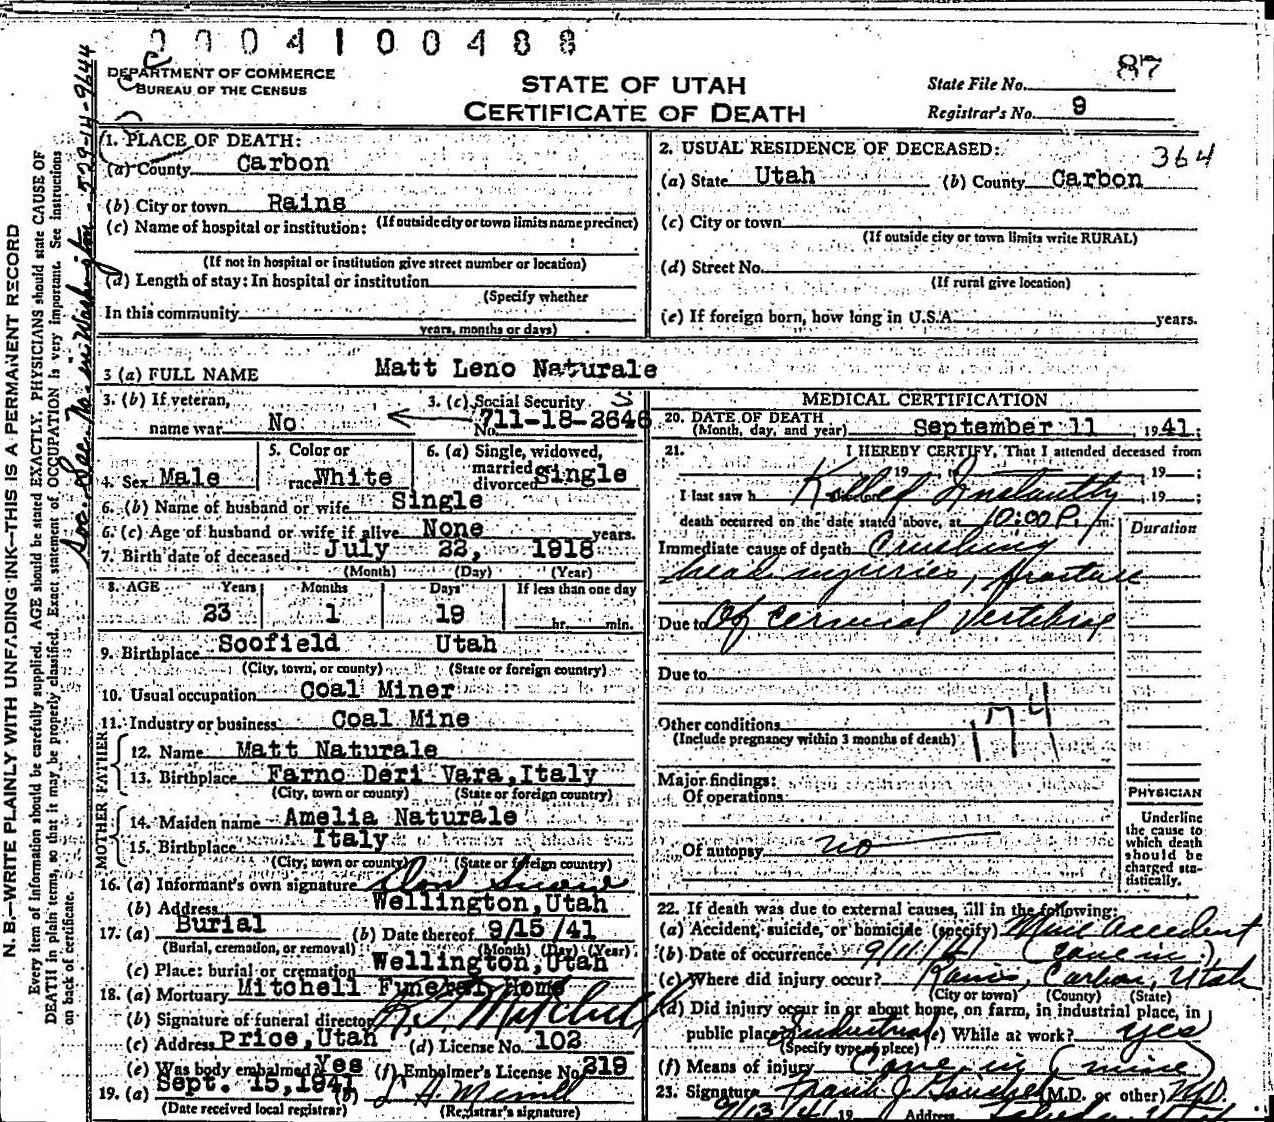 0004100488
DEPARTMENT OF COMMERCE
BUREAU OF THE CENSUS
STATE OF UTAH
CERTIFICATE OF DEATH
State File No. 87
Registrar's No. 9
N. B.—WRITE PLAINLY WITH UNFADING INK—THIS IS A PERMANENT RECORD
Every item of information should be carefully supplied. AGE should be stated EXACTLY. PHYSICIANS should state CAUSE OF
DEATH in plain terms, so that it may be properly classified. Exact statement of OCCUPATION is very important. See instructions
on back of certificate.
Soc. Sec. No. in Washington - 529-14-9644
1. PLACE OF DEATH:
(a) County Carbon
(b) City or town Rains
(If outside city or town limits name precinct)
(c) Name of hospital or institution:
(If not in hospital or institution give street number or location)
(d) Length of stay: In hospital or institution
(Specify whether
In this community
years, months or days)
2. USUAL RESIDENCE OF DECEASED: 364
(a) State Utah (b) County Carbon
(c) City or town
(If outside city or town limits write RURAL)
(d) Street No.
(If rural give location)
(e) If foreign born, how long in U.S.A. years.
3 (a) FULL NAME Matt Leno Naturale
3. (b) If veteran, name war No
3. (c) Social Security No. 711-18-2646
4. Sex Male
5. Color or race White
6. (a) Single, widowed, married divorced Single
6. (b) Name of husband or wife Single
6. (c) Age of husband or wife if alive None years.
7. Birth date of deceased July 22, 1918
(Month) (Day) (Year)
8. AGE Years Months Days If less than one day
23 1 19 hr. min.
9. Birthplace Scofield Utah
(City, town, or county) (State or foreign country)
10. Usual occupation Coal Miner
11. Industry or business Coal Mine
FATHER
12. Name Matt Naturale
13. Birthplace Farno Deri Vara, Italy
(City, town or county) (State or foreign country)
MOTHER
14. Maiden name Amelia Naturale
15. Birthplace Italy
(City, town or county) (State or foreign country)
16. (a) Informant's own signature
(b) Address Wellington, Utah
17. (a) Burial (b) Date thereof 9/15/41
(Burial, cremation, or removal) (Month) (Day) (Year)
(c) Place: burial or cremation Wellington, Utah
18. (a) Mortuary Mitchell Funeral Home
(b) Signature of funeral director Mitchell
(c) Address Price, Utah (d) License No. 102
(e) Was body embalmed? Yes (f) Embalmer's License No. 219
19. (a) Sept. 15, 1941 (b) Merrill
(Date received local registrar) (Registrar's signature)
MEDICAL CERTIFICATION
20. DATE OF DEATH
(Month, day, and year) September 11, 1941
21. I HEREBY CERTIFY, That I attended deceased from
19 19
I last saw h Killed Instantly, 19
death occurred on the date stated above, at 10:00 P. m.
Duration
Immediate cause of death Crushing
head injuries, fracture
Due to Of cervical vertebrae
Due to
Other conditions 174
(Include pregnancy within 3 months of death)
Major findings:
Of operations
Of autopsy no
PHYSICIAN
Underline
the cause to
which death
should be
charged sta-
tistically.
22. If death was due to external causes, fill in the following:
(a) Accident, suicide, or homicide (specify) Mine accident
(b) Date of occurrence 9/11/41 (cave in)
(c) Where did injury occur? Rains, Carbon, Utah
(City or town) (County) (State)
(d) Did injury occur in or about home, on farm, in industrial place, in
public place? Industrial (e) While at work? yes
(Specify type of place)
(f) Means of injury Cave in (mine)
23. Signature Frank J. (M.D. or other) M.D.
9/13/41 19 Address Utah